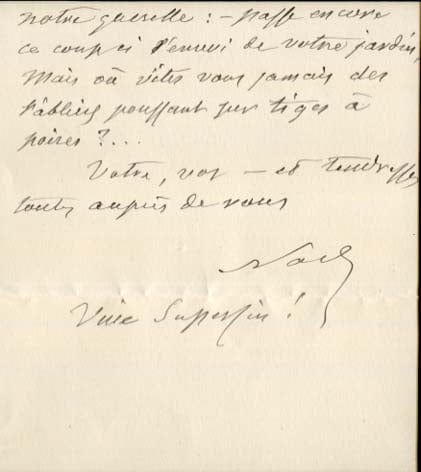 notre querelle : – passe encore
ce coup ci l'envoi de votre jardin,
Mais où vîtes vous jamais des
sabliers poussant sur tiges à
poires ?...
Votre, vos – et tendresses
toutes auprès de vous
Vive Superfin !